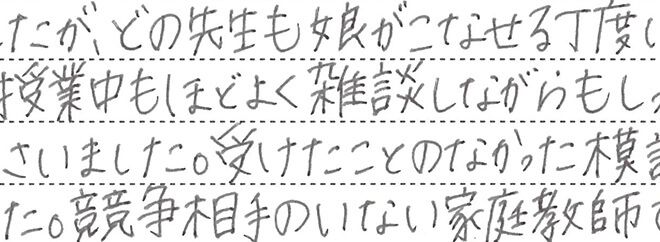 たが、どの先生も娘がこなせる丁度し
授業中もほどよく雑談しながらもしっ
さいました。受けたことのなかった模
た。競争相手のいない家庭教師で